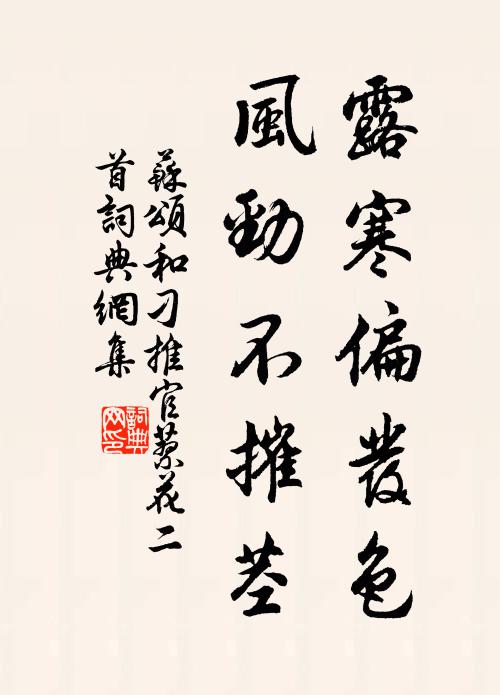 露寒偏發色
風勁不摧莖
蘇頌和刁推官蓼花二
首詞典網集
詞典
网印